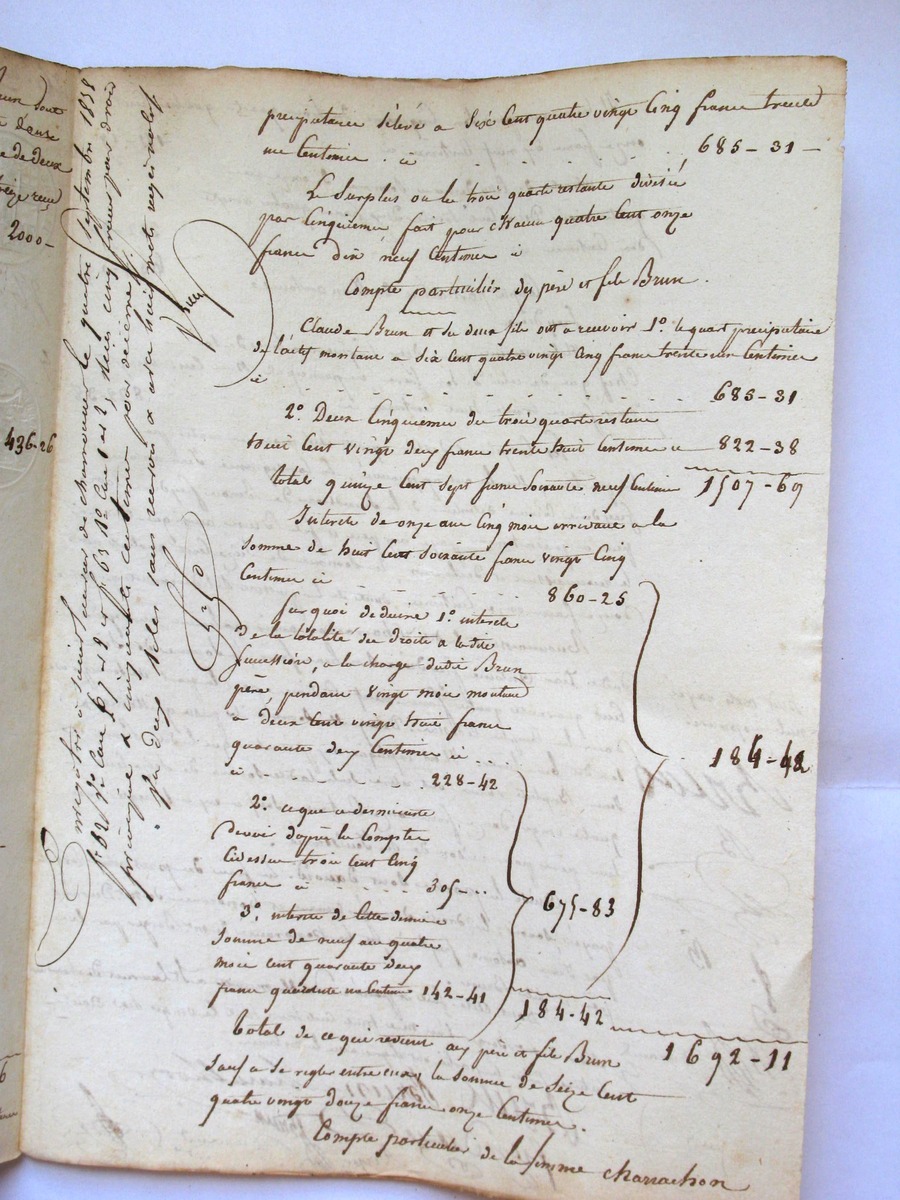 preciputaire s'éleve a Six Cent quatre vingt Cinq francs trente
un Centimes . ci . . . . . . . . 685-31-
Le Surplus ou les trois quarts restants divisés
par Cinquiemes fait pour chacun quatre Cent onze
francs dix neuf Centimes ci
Compte particulier des père et fils Brun .
Claude Brun et ses deux fils ont a recevoir 1º. le quart preciputaire
de l'actif montant a six Cent quatre vingt Cinq francs trente un Centimes
ci . . . . . . . . 685-31
2º. Deux Cinquiemes des trois quarts restants
huit Cent vingt deux francs trente huit Centimes ci 822-38
total quinze Cent Sept francs Soixante neuf Centimes 1507-69
Interets de onze ans Cinq mois arrivants a la
somme de huit Cent soixante francs vingt Cinq
Centimes ci . . . . 860-25
sur quoi deduire 1º. interets
de la totalité des droits a la dite
succession, a la charge dudit Brun
père, pendant vingt mois montant
a deux Cent vingt huit francs
quarante deux Centimes ci . . .
ci . . . . 228-42
2º. ce que ce dernier reste
devoir d'après les Comptes
Cidessus trois Cent Cinq
francs ci . . . . 305-..
675-83
3º. interets de Cette derniere
Somme de neuf ans quatre
mois Cent quarante deux
francs quarante un Centimes 142-41
184-42
184-42
total de ce qui revient aux père et fils Brun 1692-11
sauf a se regler entre eux, la somme de Seize Cent
quatre vingt douze francs onze Centimes.
Compte particulier de la femme Charrachon
Enregistré à
le quatre septembre 1838
fº 62 Rº Case 1 et 2,
cinq francs pour droit
principal & cinquante centimes pour décime
Plus deux Roles sans renvois
436-26
2000-